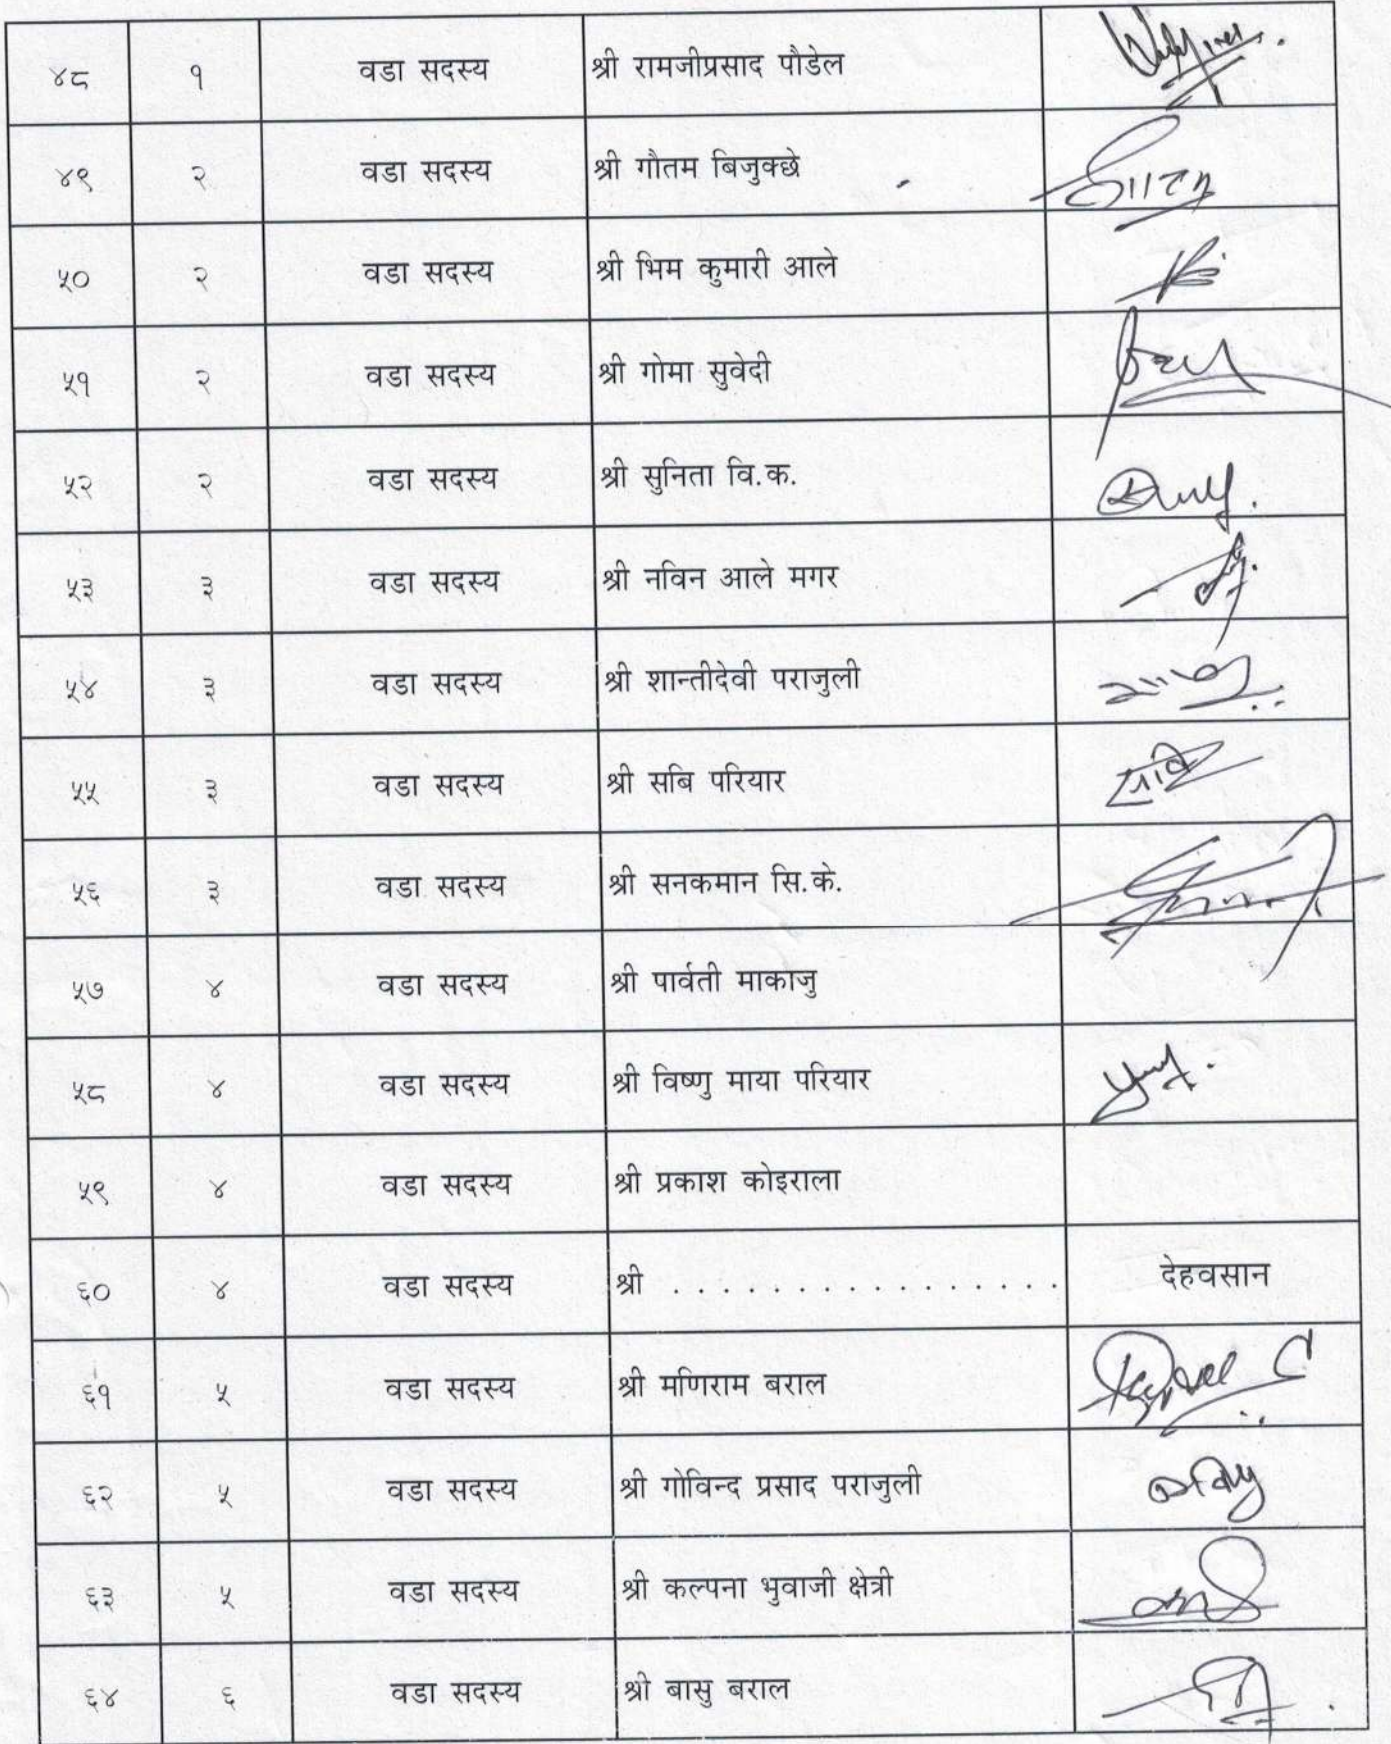 ४८ १ वडा सदस्य श्री रामजीप्रसाद पौडेल
४९ २ वडा सदस्य श्री गौतम बिजुक्छे
५० २ वडा सदस्य श्री भिम कुमारी आले
५१ २ वडा सदस्य श्री गोमा सुवेदी
५२ २ वडा सदस्य श्री सुनिता वि.क.
५३ ३ वडा सदस्य श्री नविन आले मगर
५४ ३ वडा सदस्य श्री शान्तीदेवी पराजुली
५५ ३ वडा सदस्य श्री सबि परियार
५६ ३ वडा सदस्य श्री सनकमान सि.के.
५७ ४ वडा सदस्य श्री पार्वती माकाजु
५८ ४ वडा सदस्य श्री विष्णु माया परियार
५९ ४ वडा सदस्य श्री प्रकाश कोइराला
६० ४ वडा सदस्य श्री . . . . . . . . . . . . . . . . देहवसान
६१ ५ वडा सदस्य श्री मणिराम बराल
६२ ५ वडा सदस्य श्री गोविन्द प्रसाद पराजुली
६३ ५ वडा सदस्य श्री कल्पना भुवाजी क्षेत्री
६४ ६ वडा सदस्य श्री बासु बराल